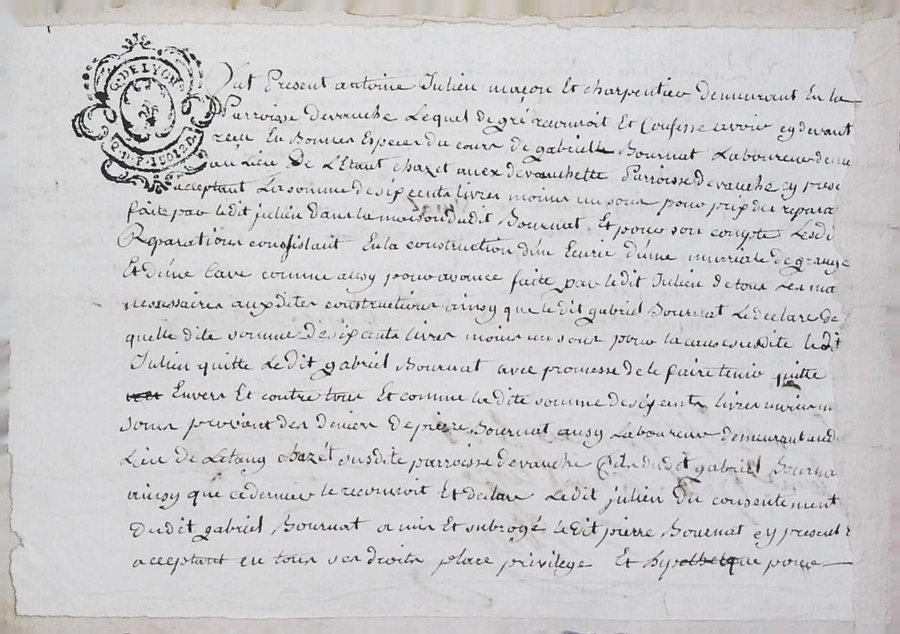 G. DE LYON
Q. D. P. 1S. 01 2 D.
Fut Present antoine Julien macon Et charpentier demeurant En la
Parroisse devauche Lequel de gré reconnoit Et Confesse avoir cy devant
reçu En Bonnes Especes du cours de gabrielle Bournat Laboureur deme
au Lieu De L'Etant chazet devauchette Parroisse devauche cy prese
acceptant La somme desix cents livres moins un sous pour prix des repara
faite par ledit julien dans la maison dudit Bournat, Et pour son compte Lesdi
Reparations consistant En la construction d'un Ecurie d'une murriale de grange
Et d'une Cave comme ausy pour avance faite par ledit Julien de tous Les ma
nessessaires auxdites constructions ainsy que ledit gabriel Bournat Le declare de
quelle dite somme de six cents livres moins un sous pour la cause susdite ledit
Julien quitte Ledit gabriel Bournat avec promesse de le faire tenir quitte
Envers Et contre tous Et comme la dite somme desix cents livres moins un
sous provient des deniers de pierre Bournat ausy Laboureur demeurant aud
Lieu De Létang chazét susdite parroisse devauche dudit gabriel Bourna
ainsy que ce dernier le reconnoit Et declare Ledit julien Du consentement
Dudit gabriel Bournat a mis Et subrogé ledit pierre Bournat cy present
acceptant en tous ses droits place privilege Et hypotheque pour